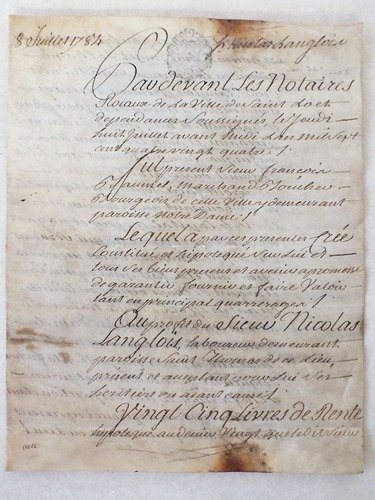 8 Juillet 1784
Nicolas Langlois
Pardevant Les Notaires
Roiaux de La Ville de Saint Lo et
dependances Soussignés, le Jeudi
huit Juillet avant midi L'an mil sept
cent quatre vingt quatre ;
Fut present Sieur francois
marchand
Bourgeois de cette Ville y demeurant
paroisse Notre Dame ;
Lequel a par ces presentes Créé
Constitué et hipotequé Sur Lui et
tous Ses biens presens et avenir a promesse
de garantir fournir et faire Valoir
tant en principal qu'arrerages ;
Au profit du Sieur Nicolas
Langlois, Laboureur demeurant
paroisse Saint de ce Lieu,
présent et acceptant pour Lui Ses
heritiers ou aiant cause ;
Vingt Cinq Livres de Rente
hypoteque au denier Vingt que le dit Sieur